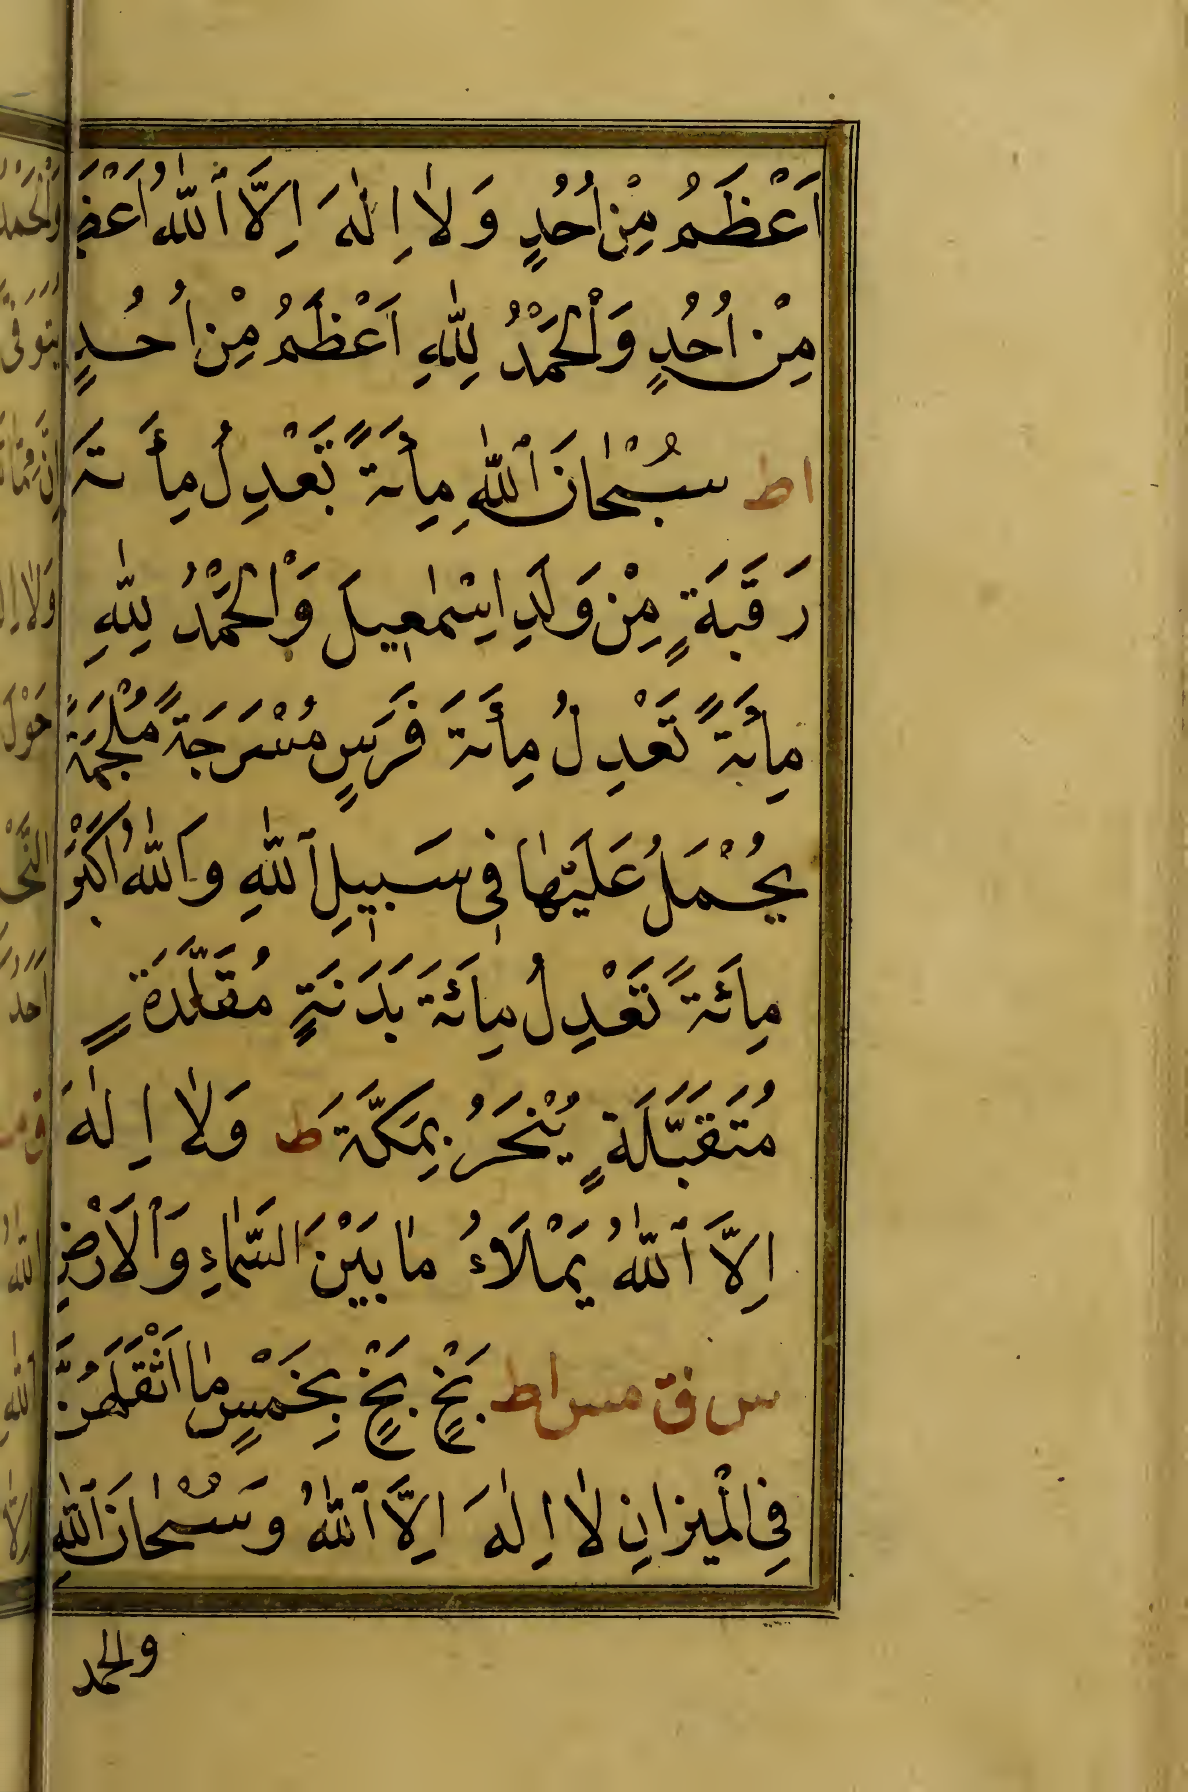 اَعْظَمُ مِنْ اُحُدٍ وَلٰا اِلٰهَ اِلَّا ٱللّٰهُ اَعْظَمُ
مِنْ اُحُدٍ وَٱلْحَمْدُ لِلّٰهِ اَعْظَمُ مِنْ اُحُدٍ
اط سُبْحٰانَ ٱللّٰهِ مِأَةً تَعْدِلُ مِأَةَ
رَقَبَةٍ مِنْ وَلَدِ اِسْمٰعِيلَ وَٱلْحَمْدُ لِلّٰهِ
مِأَئَةً تَعْدِلُ مِأَةَ فَرَسٍ مُسْرَجَةً مُلْجَمَةً
يُحْمَلُ عَلَيْهٰا فِي سَبِيلِ ٱللّٰهِ وَاللّٰهُ اَكْبَرُ
مِائَةً تَعْدِلُ مِائَةَ بَدَنَةٍ مُقَلَّدَةٍ
مُتَقَبَّلَةٍ يُنْحَرُ بِمَكَّةَ ط وَلٰا اِلٰهَ
اِلَّا ٱللّٰهُ يَمْلَاءُ مٰا بَيْنَ السَّمٰاءِ وَٱلْاَرْضِ
س ق مس اط بَخٍْ بَخٍْ بِخَمْسٍ مٰا اَثْقَلَهُنَّ
فِي الْمِيزٰانِ لٰا اِلٰهَ اِلَّا ٱللّٰهُ وَسُبْحٰانَ ٱللّٰهِ
والحمد